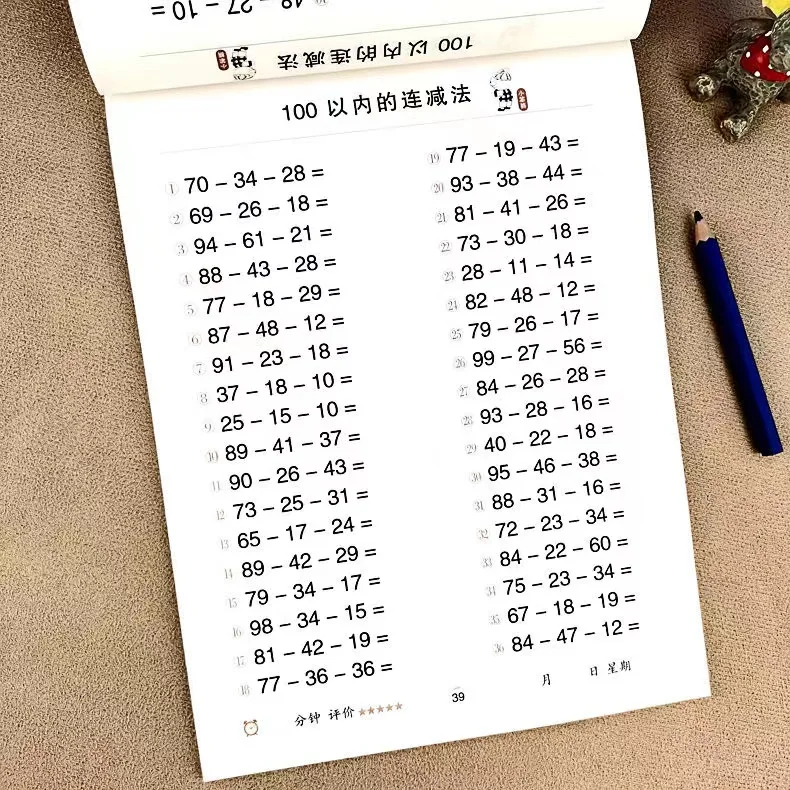 48 - 27 - 10 =
100 以内的连减法
100 以内的连减法
1 70 - 34 - 28 =
2 69 - 26 - 18 =
3 94 - 61 - 21 =
4 88 - 43 - 28 =
5 77 - 18 - 29 =
6 87 - 48 - 12 =
7 91 - 23 - 18 =
8 37 - 18 - 10 =
9 25 - 15 - 10 =
10 89 - 41 - 37 =
11 90 - 26 - 43 =
12 73 - 25 - 31 =
13 65 - 17 - 24 =
14 89 - 42 - 29 =
15 79 - 34 - 17 =
16 98 - 34 - 15 =
17 81 - 42 - 19 =
18 77 - 36 - 36 =
19 77 - 19 - 43 =
20 93 - 38 - 44 =
21 81 - 41 - 26 =
22 73 - 30 - 18 =
23 28 - 11 - 14 =
24 82 - 48 - 12 =
25 79 - 26 - 17 =
26 99 - 27 - 56 =
27 84 - 26 - 28 =
28 93 - 28 - 16 =
29 40 - 22 - 18 =
30 95 - 46 - 38 =
31 88 - 31 - 16 =
32 72 - 23 - 34 =
33 84 - 22 - 60 =
34 75 - 23 - 34 =
35 67 - 18 - 19 =
36 84 - 47 - 12 =
分钟 评价★★★★★
39
月 日 星期